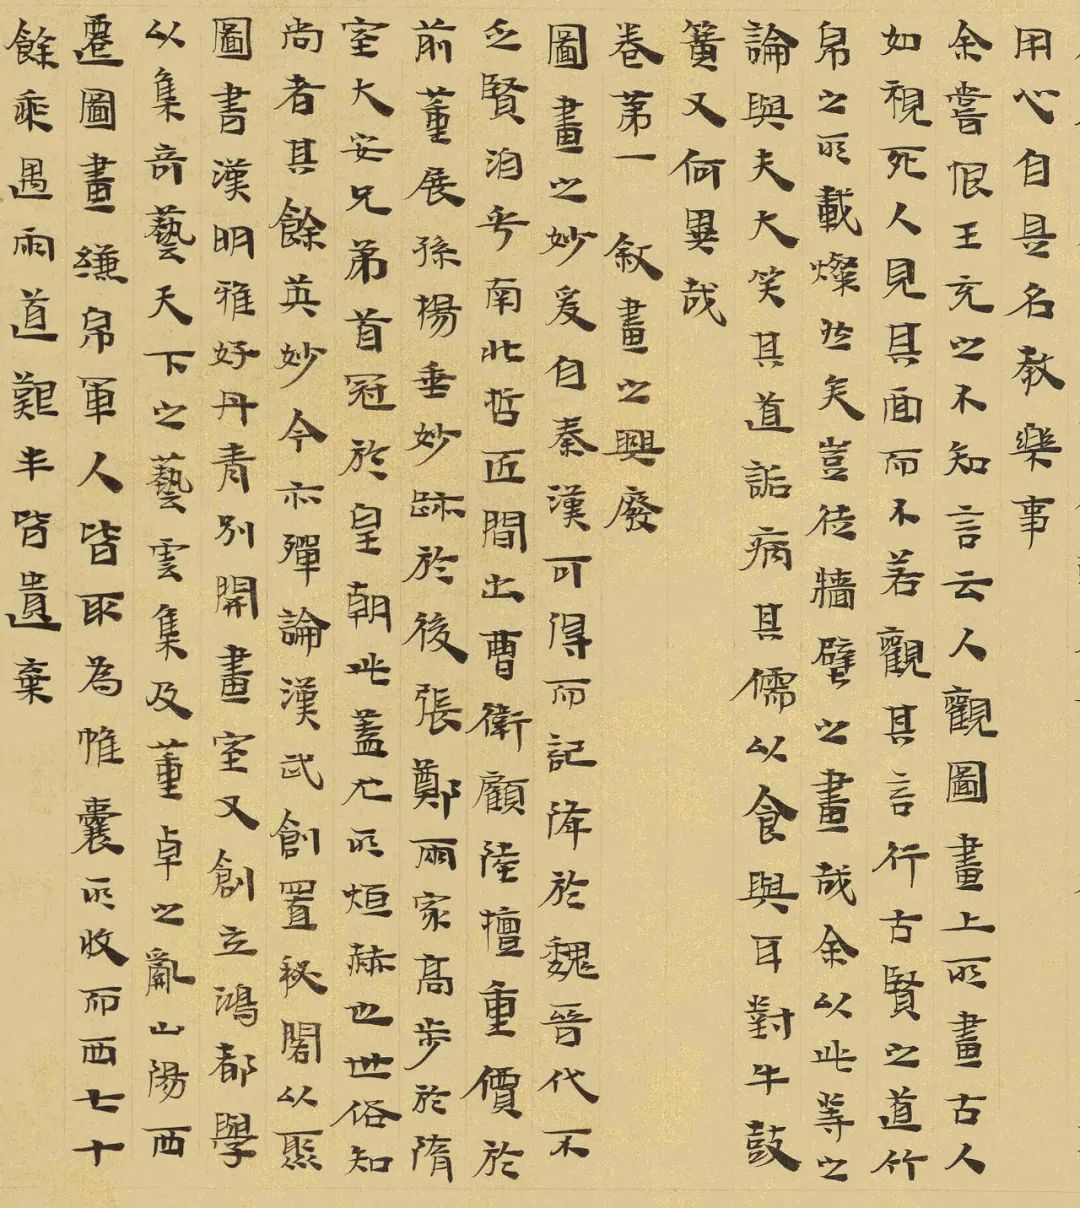 用心自是名教樂事
余嘗恨王充之不知言云人觀圖畫上所畫古人
如視死人見其面而不若觀其言行古賢之道竹
帛之所載燦然矣豈徒牆壁之畫哉余以此等之
論與夫大笑其道詬病其儒以食與耳對牛鼓
簧又何異哉
卷第一 敘畫之興廢
圖畫之妙爰自秦漢可得而記降於魏晉代不
乏賢洎乎南北哲匠間出曹衛顧陸擅重價於
前董展孫楊垂妙跡於後張鄭兩家高步於隋
室大安兄弟首冠於皇朝此蓋尤所烜赫也世俗知
尚者其餘英妙今亦殫論漢武創置秘閣以聚
圖書漢明雅好丹青別開畫室又創立鴻都學
以集奇藝天下之藝雲集及董卓之亂山陽西
遷圖畫縑帛軍人皆取為帷囊所收而西七十
餘乘遇雨道艱半皆遺棄